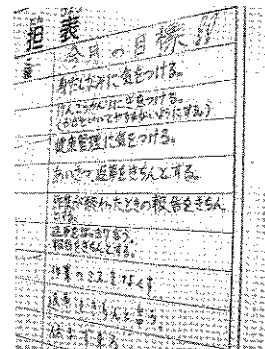 担 表
今月の目標!!
身だしなみに気をつける。
に気をつける。
健康管理に気をつける。
あいさつ、返事をきちんとする。
作業が終わったときの報告をきちんとする。
返事をはっきり言う。
報告をきちんとする。
作業のミスをなくす
返事をきちんとする